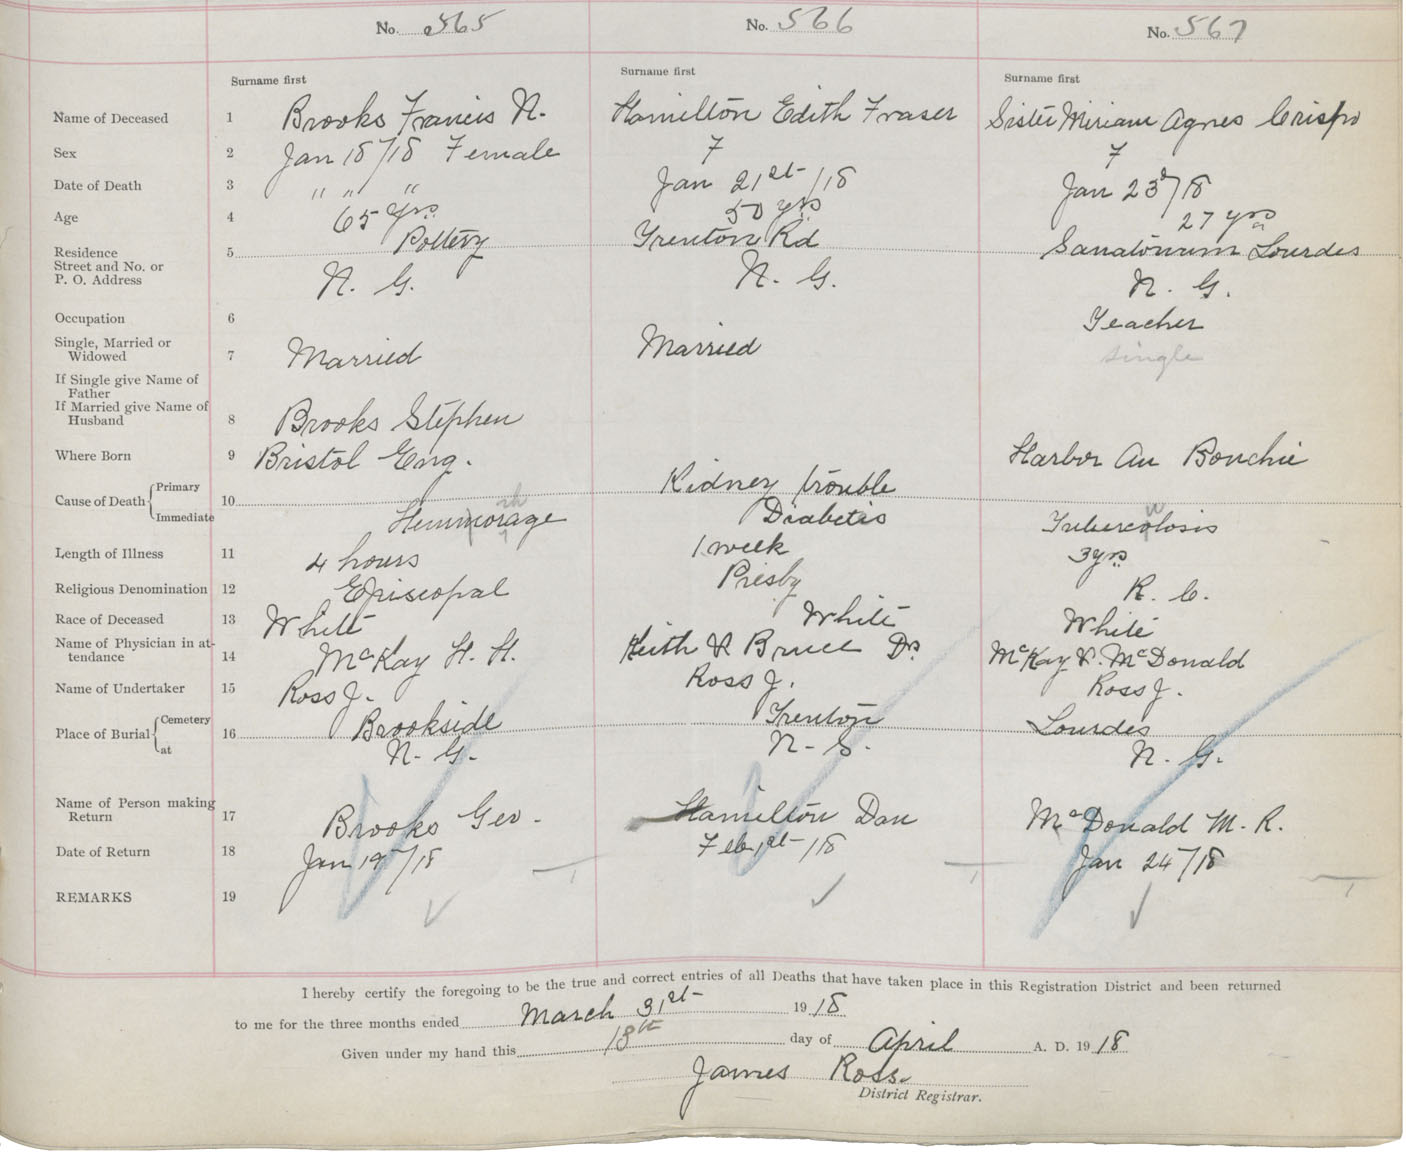 No. 565 No. 566 No. 567
Surname first Surname first Surname first
Name of Deceased 1 Brooks Francis N. Hamilton Edith Fraser Sister Miriam Agnes Crispo
Sex 2 Jan 18/18 Female F F
Date of Death 3 " " " Jan 21st/18 Jan 23d/18
Age 4 65 yrs 50 yrs 27 yrs
Residence 5 Pottery Trenton Rd Sanatorium Lourdes
Street and No. or
P. O. Address N. G. N. G. N. G.
Occupation 6 Teacher
Single, Married or
Widowed 7 Married Married single
If Single give Name of
Father
If Married give Name of
Husband 8 Brooks Stephen
Where Born 9 Bristol Eng. Harbor Au Bouchie
Cause of Death Primary 10 Kidney trouble
Immediate Hemmorage rh Diabetis Tuberculosis
Length of Illness 11 4 hours 1 week 3 yrs
Religious Denomination 12 Episcopal Presby R. C.
Race of Deceased 13 White White White
Name of Physician in at-
tendance 14 McKay H. H. Keith & Bruce Drs McKay & McDonald
Name of Undertaker 15 Ross J. Ross J. Ross J.
Place of Burial Cemetery 16 Brookside Trenton Lourdes
at N. G. N. S. N. G.
Name of Person making
Return 17 Brooks Geo. Hamilton Dan McDonald M. R.
Date of Return 18 Jan 19/18 Feb 1st/18 Jan 24/18
REMARKS 19
I hereby certify the foregoing to be the true and correct entries of all Deaths that have taken place in this Registration District and been returned
to me for the three months ended March 31st 19 18
Given under my hand this 18th day of April A. D. 19 18
James Ross
District Registrar.